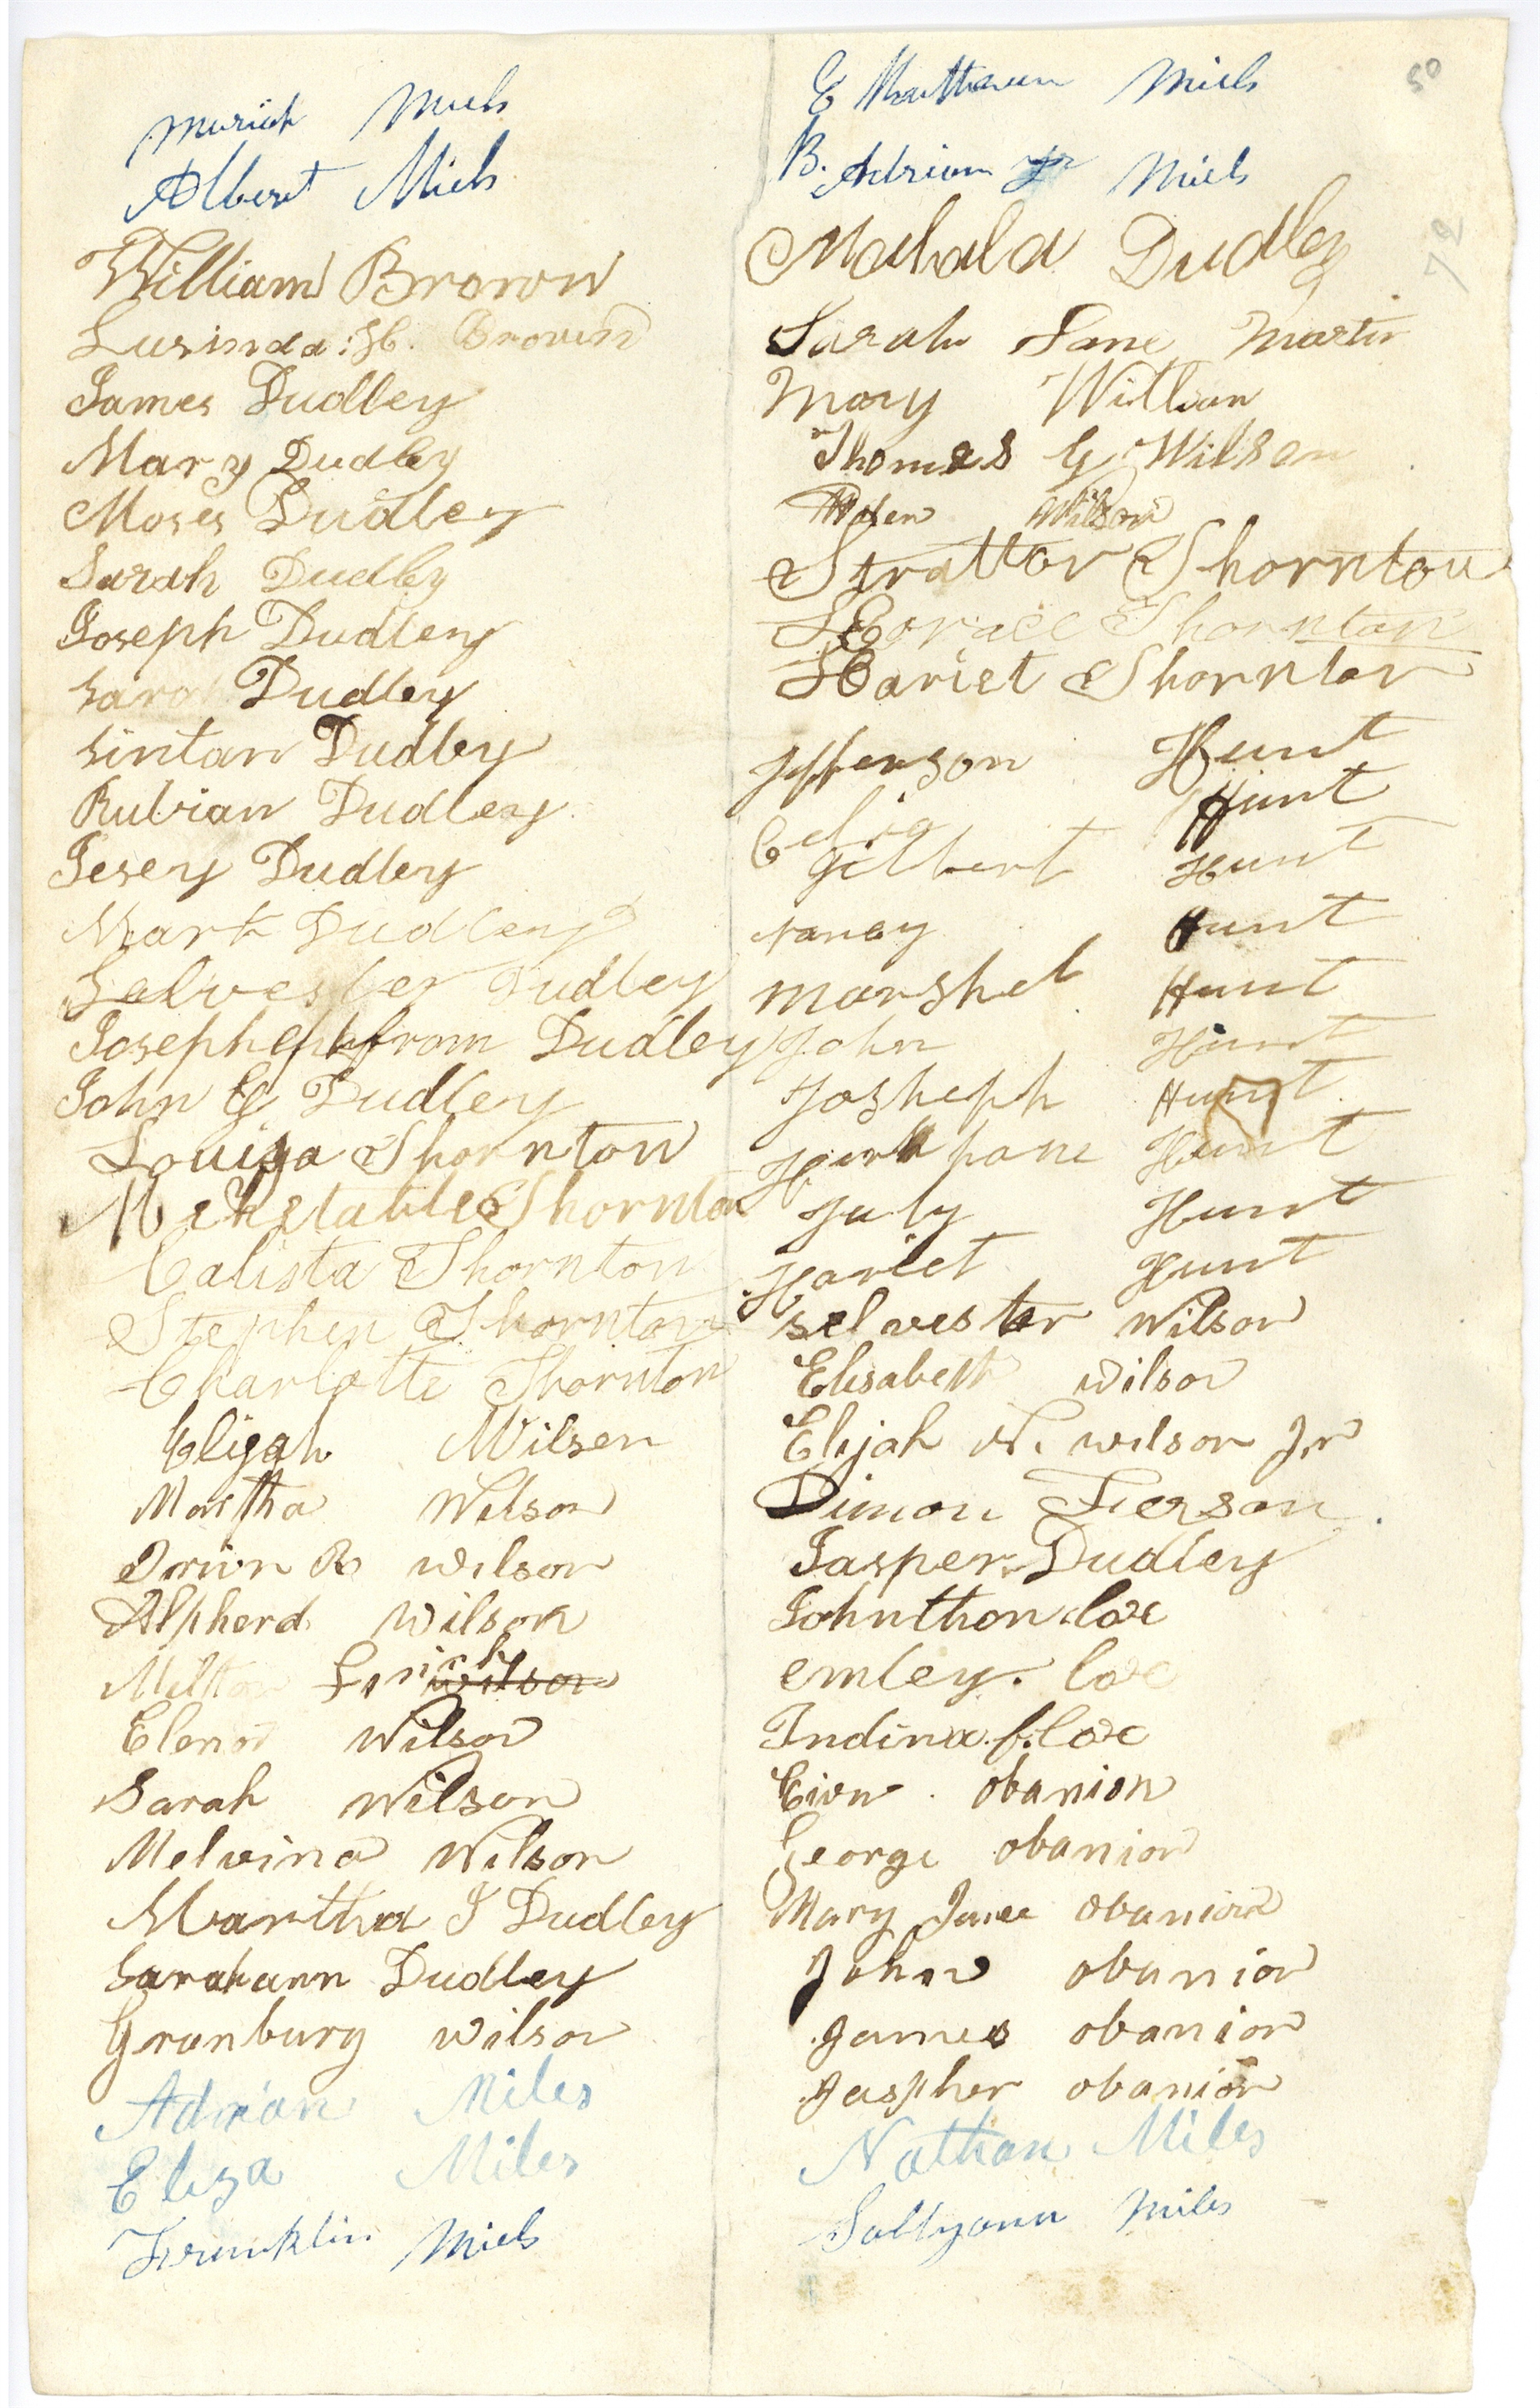 Muriah Miels
Albert Miels
William Brown
Lusinda : H. Brown
James Dudley
Mary Dudley
Moses Dudley
Sarah Dudley
Joseph Dudley
Sarah Dudley
Sintan Dudley
Rubian Dudley
Jesey Dudley
Mark Dudley
Selvester Dudley
Joseph Ephrom Dudley
John G Dudley
Louisa Thornton
Mehetable Thornton
Calista Thornton
Stephen Thornton
Charlotte Thornton
Eligah Wilson
Martha Wilson
Orion R Wilson
Alpherd Wilson
Milton
Elenor Wilson
Sarah Wilson
Melvina Wilson
Martha J Dudley
Sarahann Dudley
Granbury Wilson
Adrian Miles
Eliza Miles
Franklin Miels
50
E Miels
B. Adrian Jr Miels
72
Mahala Dudley
Sarah Jane Martin
Mary Willian
Thomas G Wilson
Wilson
Stratton Thornton
Horace Thornton
Hariet Thornton
Jefferson Hunt
Celia Hunt
Gilbert Hunt
Nancy Hunt
Marshel Hunt
John Hunt
Josheph Hunt
Hunt
July Hunt
Hariet Hunt
Selvester Wilson
Elisabeth Wilson
Elijah N. Wilson Jr
Simon Ferson
Jasper Dudley
Johnthon Coxe
emley. Coxe
Indina f. Coxe
obanion
George obanion
Mary Jane obanion
John obanion
James obanion
Jaspher obanion
Nathan Miles
Sallyann Miles